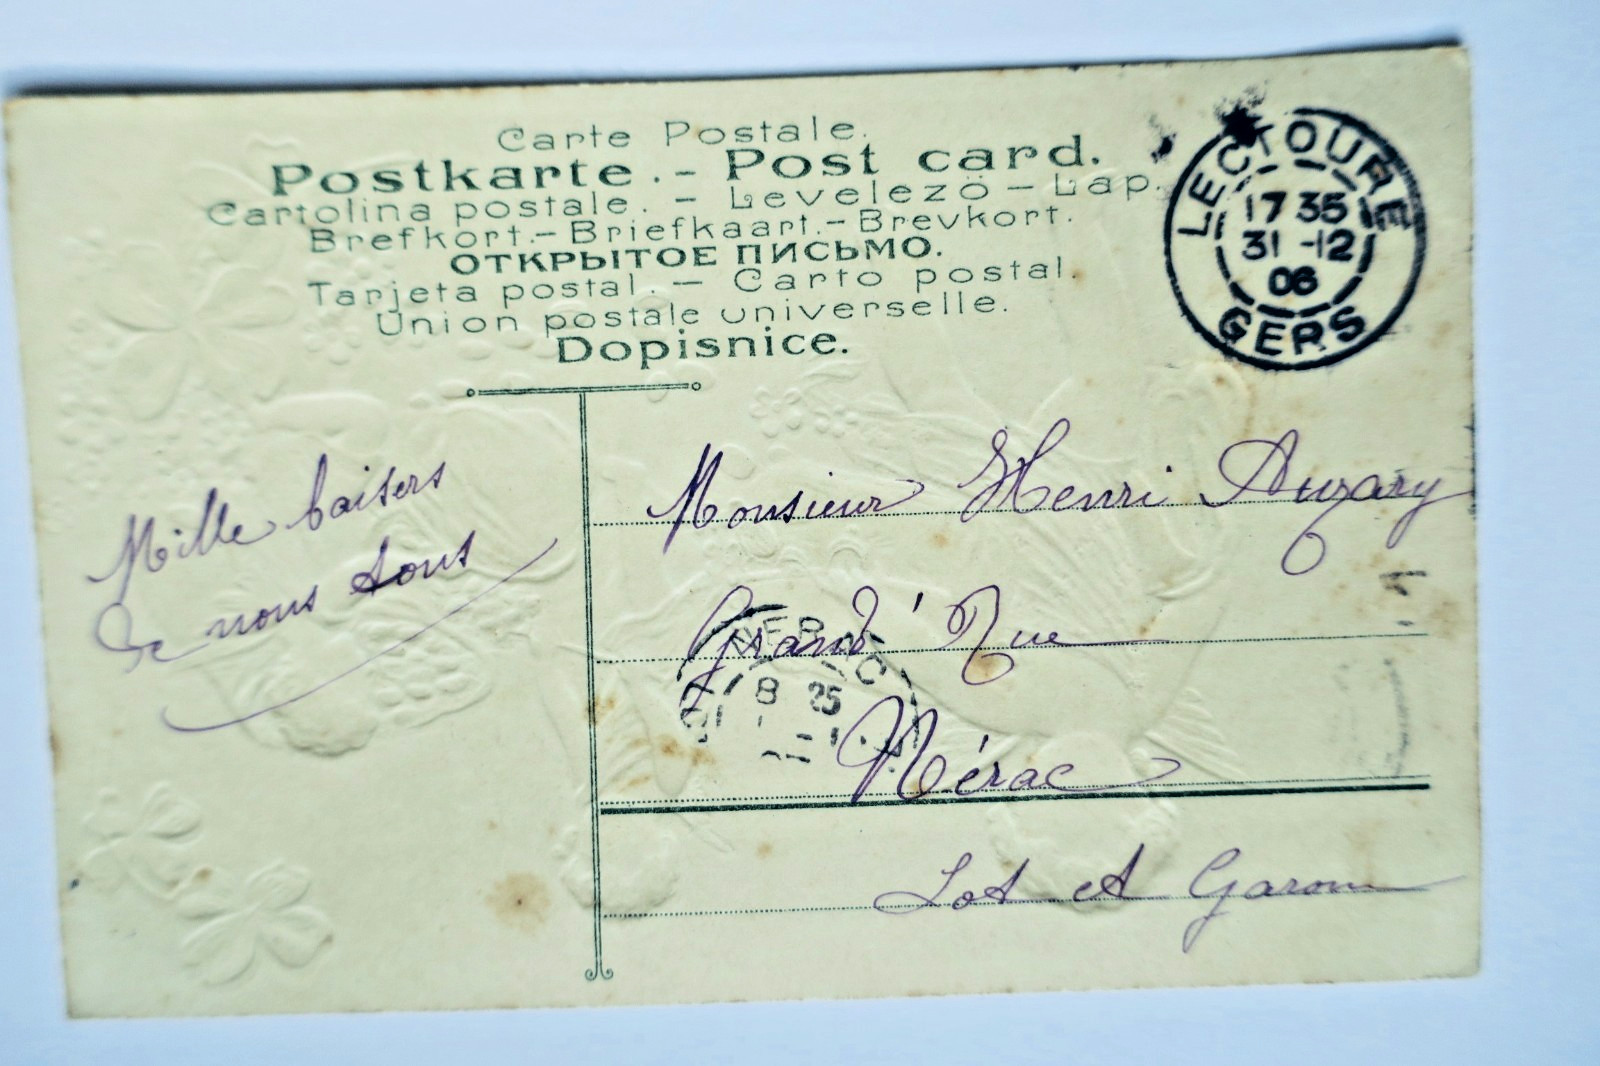 Carte Postale.
Postkarte. - Post card.
Cartolina postale. - Levelezö - Lap.
Brefkort. - Briefkaart. - Brevkort.
ОТКРЫТОЕ ПИСЬМО.
Tarjeta postal. — Carto postal.
Union postale universelle.
Dopisnice.
LECTOURE
17 35
31 -12
06
GERS
Mille baisers
de nous tous
Monsieur Henri Auzary
Grand' Rue
NERAC
8 25
Nérac
Lot et Garonne